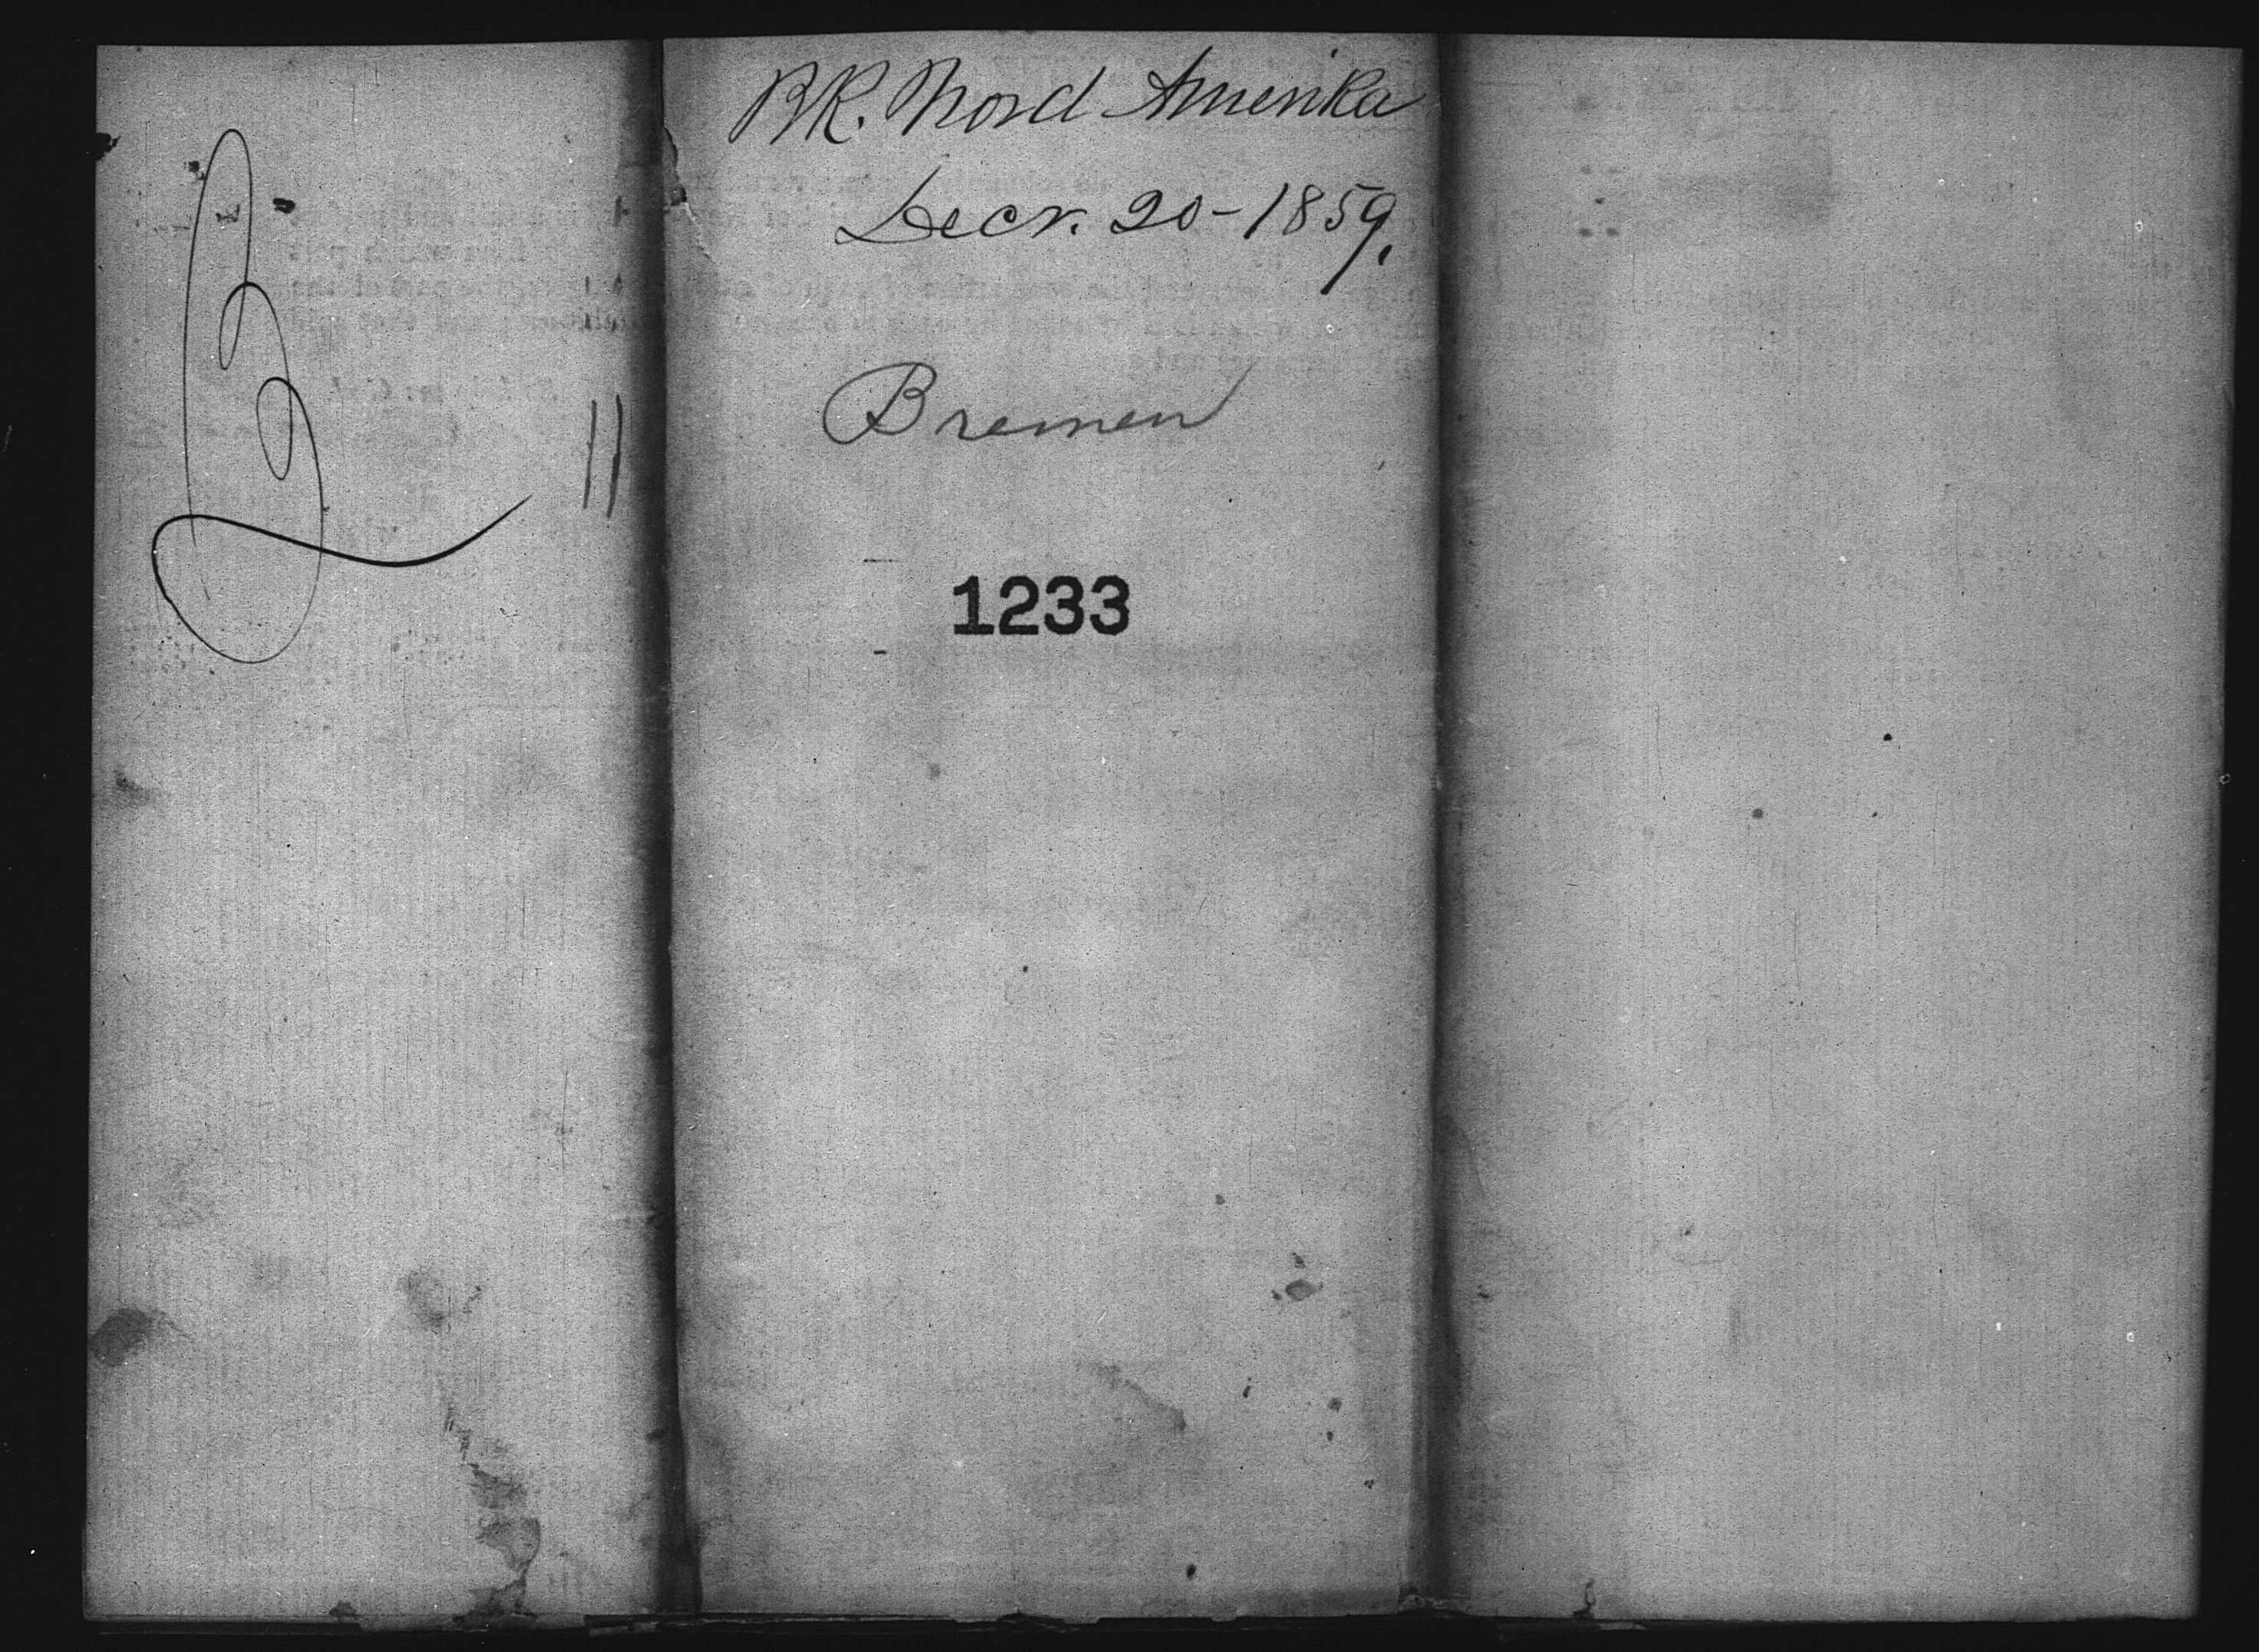 BK. Nord Amerika
Decr. 20-1859.
Bremen
1233
11